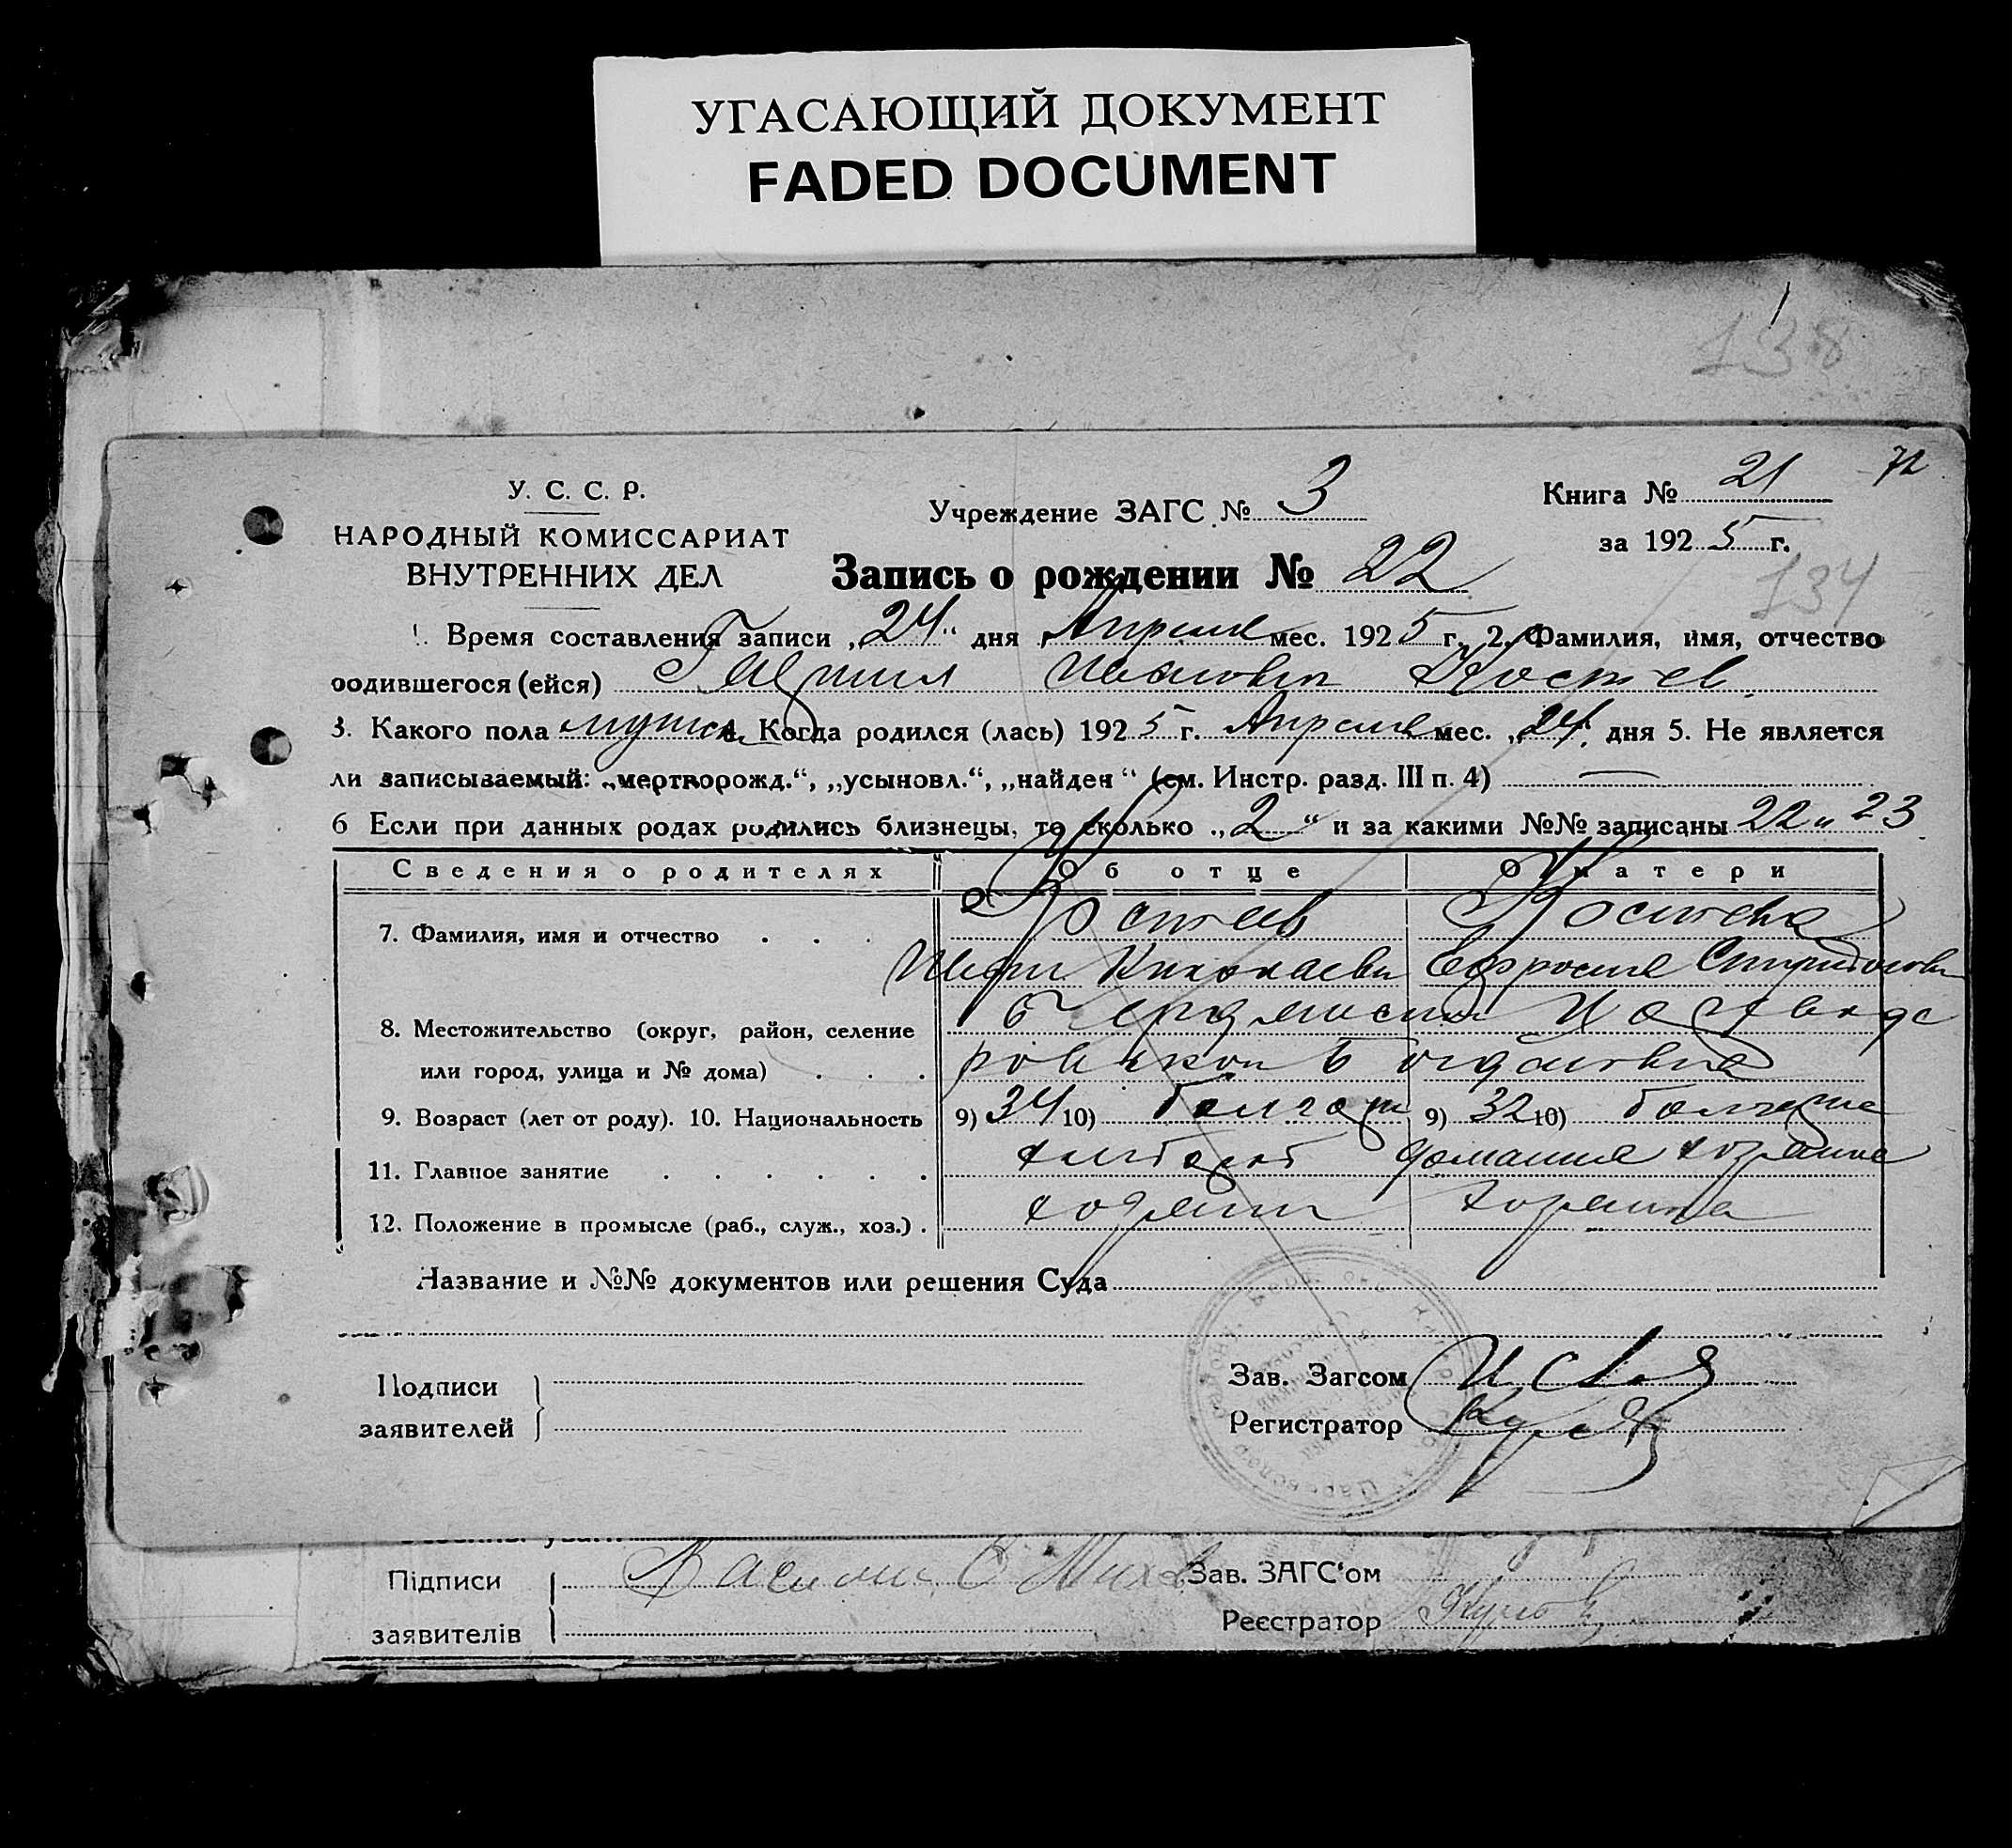 УГАСАЮЩИЙ ДОКУМЕНТ
FADED DOCUMENT
138
72
У. С. С. Р.
НАРОДНЫЙ КОМИССАРИАТ
ВНУТРЕННИХ ДЕЛ
Учреждение ЗАГС № 3
Книга № 21
за 1925 г.
134
Запись о рождении № 22
1. Время составления записи „24“ дня Апреля мес. 1925 г. 2. Фамилия, имя, отчество
родившегося (ейся) Гавриил Иванович Костев
3. Какого пола мужск 4. Когда родился (лась) 1925 г. Апреля мес. „24“ дня 5. Не является
ли записываемый: „мертворожд.“, „усыновл.“, „найден“ (см. Инстр. разд. III п. 4) —
6 Если при данных родах родились близнецы, то сколько „2“ и за какими №№ записаны 22 и 23
Сведения о родителях Об отце О матери
7. Фамилия, имя и отчество . . . Костев Костева
Николаевич Ефросия Спиридоновн
8. Местожительство (округ, район, селение
или город, улица и № дома) . . .
9. Возраст (лет от роду). 10. Национальность 9) 34 10) болгар 9) 32 10) болгарка
11. Главное занятие . . . . . . хлебороб домашня хозяика
12. Положение в промысле (раб., служ., хоз.) . хозяин хозяика
Название и №№ документов или решения Суда
Подписи
заявителей
Зав. Загсом
Регистратор
Підписи
заявителів
Зав. ЗАГС‘ом
Реєстратор